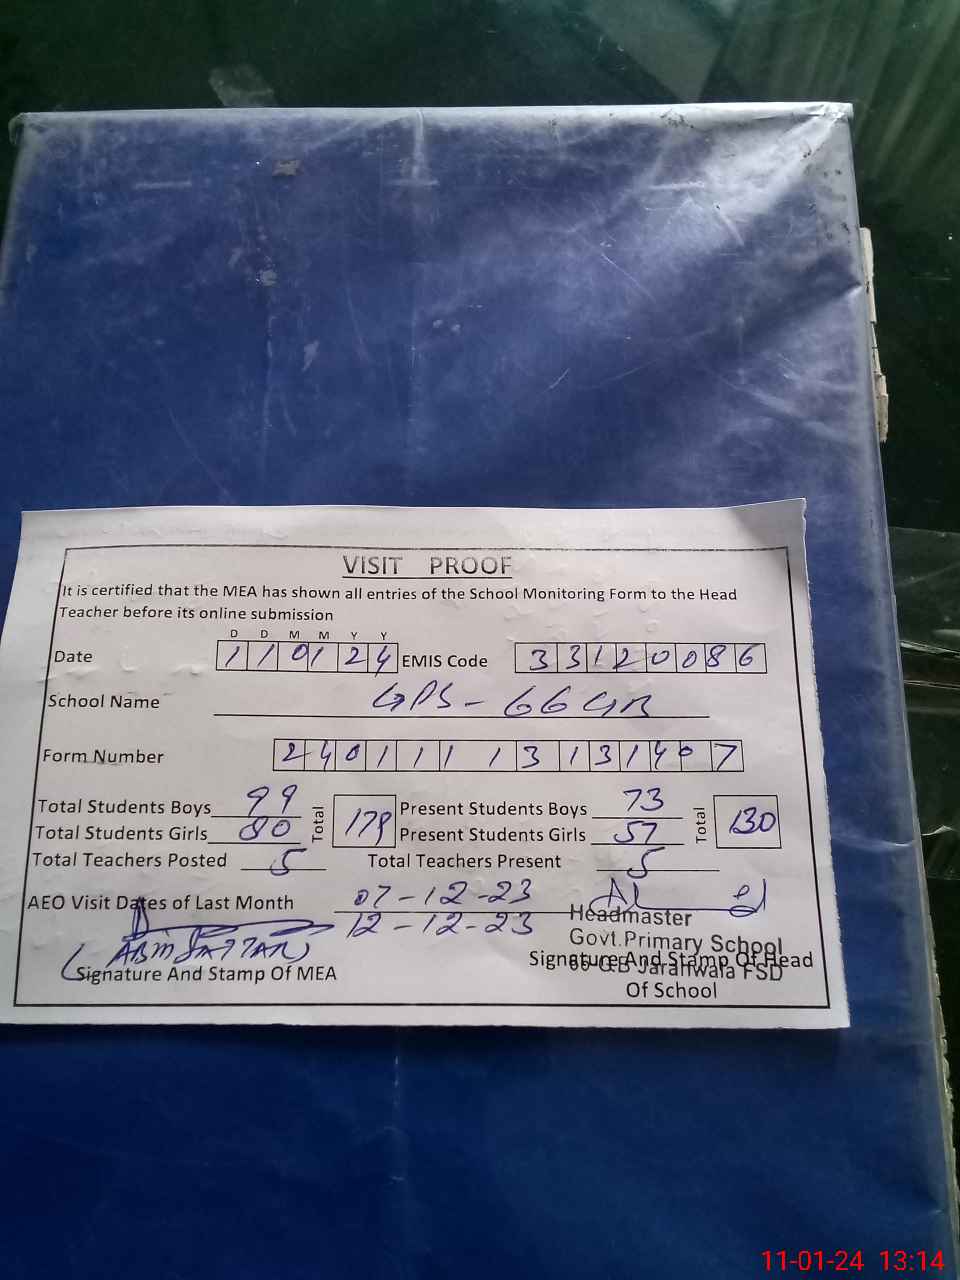 VISIT PROOF
It is certified that the MEA has shown all entries of the School Monitoring Form to the Head
Teacher before its online submission
D D M M Y Y
Date 1 1 0 1 2 4 EMIS Code 3 3 1 2 0 0 8 6
School Name GPS - 66 GB
Form Number 2 4 0 1 1 1 1 1 3 1 3 1 4 0 7
Total Students Boys 99 Total 179 Present Students Boys 73 Total 130
Total Students Girls 80 Present Students Girls 57
Total Teachers Posted 5 Total Teachers Present 5
AEO Visit Dates of Last Month 07-12-23
12-12-23
Headmaster
Govt.Primary School
66 G.B Jaranwala FSD
Signature And Stamp Of MEA
Signature And Stamp Of Head
Of School
11-01-24 13:14